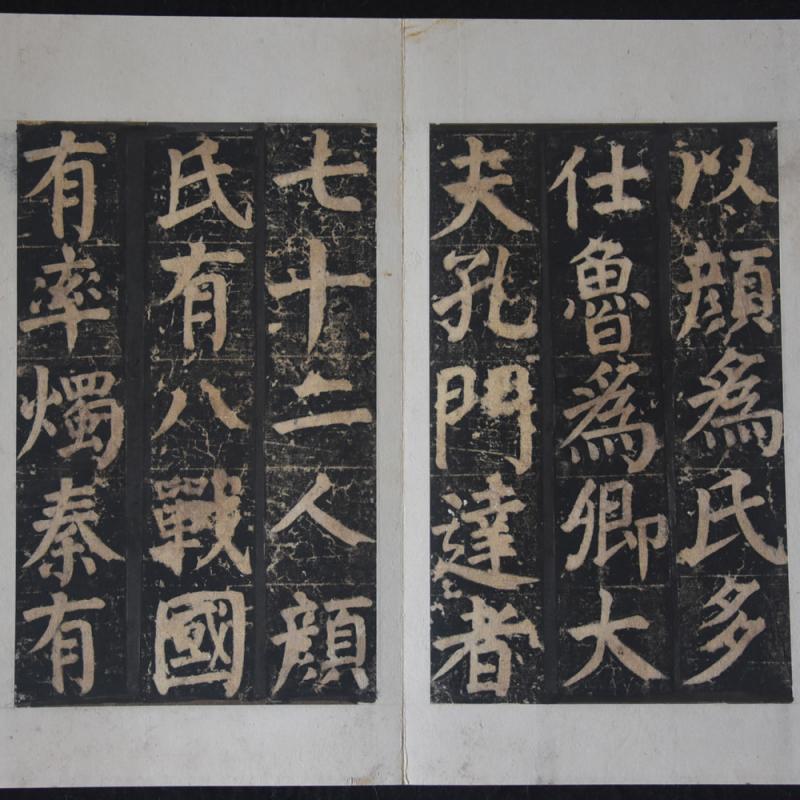 以顔爲氏多
仕魯爲卿大
夫孔門達者
七十二人顔
氏有八戰國
有率燭秦有